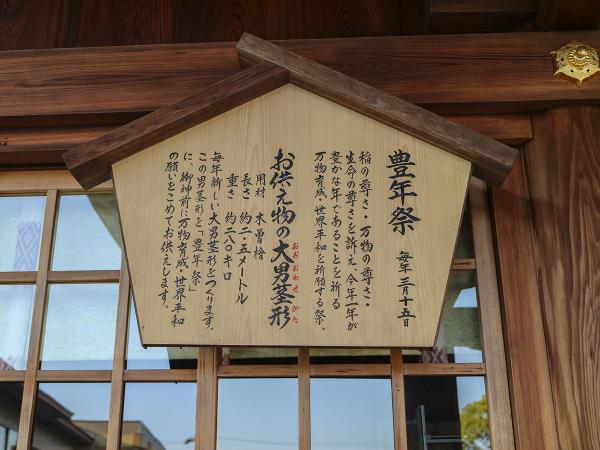 豊年祭 毎年三月十五日
稲の尊さ・万物の尊さ・
生命の尊さを訴え、今年一年が
豊かな年であることを祈る
万物育成・世界平和を祈願する祭。
お供え物の大男茎形
おおおわせがた
用材 木曽檜
長さ 約二・五メートル
重さ 約二八〇キロ
毎年新しい大男茎形をつくります。
この男茎形を「豊年祭」
に、御神前に万物育成・世界平和
の願いをこめてお供えします。